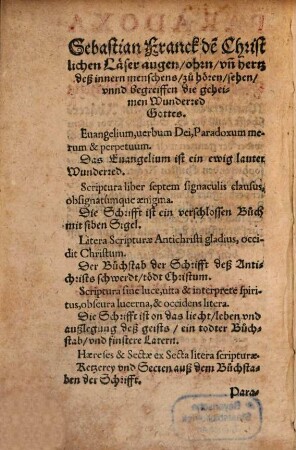 Sebastian Franck dē Christ
lichen Läser augen/ohrn/vñ hertz
deß innern menschens/zů hören/sehen/
vnnd begreiffen die gehei-
men Wunderred
Gottes.
Euangelium, uerbum Dei, Paradoxum me-
rum & perpetuum.
Das Euangelium ist ein ewig lauter
Wunderred.
Scriptura liber septem signaculis clausus,
obsignatumque ænigma.
Die Schrifft ist ein verschlossen Bůch
mit siben Sigel.
Litera Scripturæ Antichristi gladius, occi-
dit Christum.
Der Bůchstab der Schrifft deß Anti-
christs schwerdt/tödt Christum.
Scriptura sine luce, uita & interprete spiri-
tus, obscura lucerna, & occidens litera.
Die Schrifft ist on das liecht/leben vnd
außlegung deß geists/ein todter Bůch-
stab/vnd finstere Latern.
Hæreses & Sectæ ex Secta litera scripturæ.
Ketzerey vnd Secten auß dem Bůchsta-
ben der Schrifft.
Para-